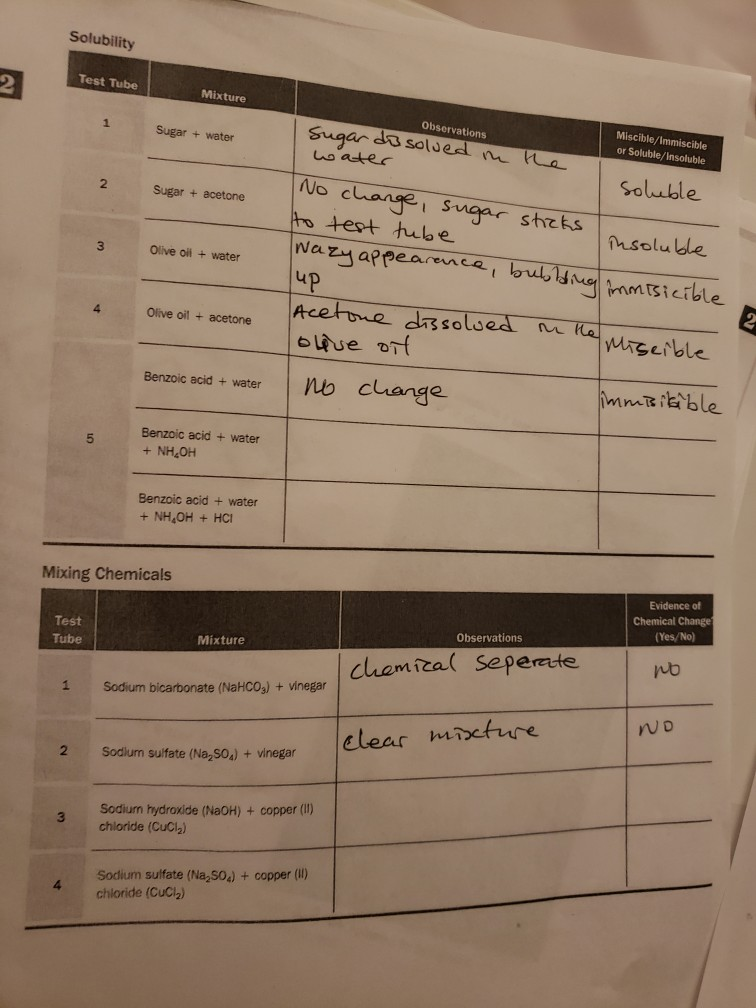 Solubility
2
Test Tube
Mixture
Observations
Miscible/Immiscible
or Soluble/Insoluble
1
Sugar + water
Sugar dissolved in the
water
Soluble
2
Sugar + acetone
No change, sugar sticks
to test tube
insoluble
3
Olive oil + water
appearance, bubbling
up
immisicible
4
Olive oil + acetone
Acetone dissolved in the
olive oil
Miscible
Benzoic acid + water
No change
5
Benzoic acid + water
+ NH₄OH
Benzoic acid + water
+ NH₄OH + HCl
2
Mixing Chemicals
Test
Tube
Mixture
Observations
Evidence of
Chemical Change?
(Yes/No)
1
Sodium bicarbonate (NaHCO₃) + vinegar
chemical seperate
NO
2
Sodium sulfate (Na₂SO₄) + vinegar
clear mixture
NO
3
Sodium hydroxide (NaOH) + copper (II)
chloride (CuCl₂)
4
Sodium sulfate (Na₂SO₄) + copper (II)
chloride (CuCl₂)